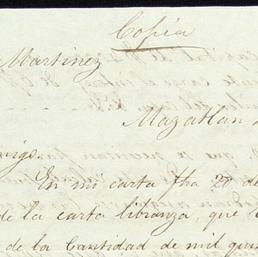 Copia
Martinez
Mazatlan
En mi carta fha 20 de
de la carta libranza, que
de la Cantidad de mil